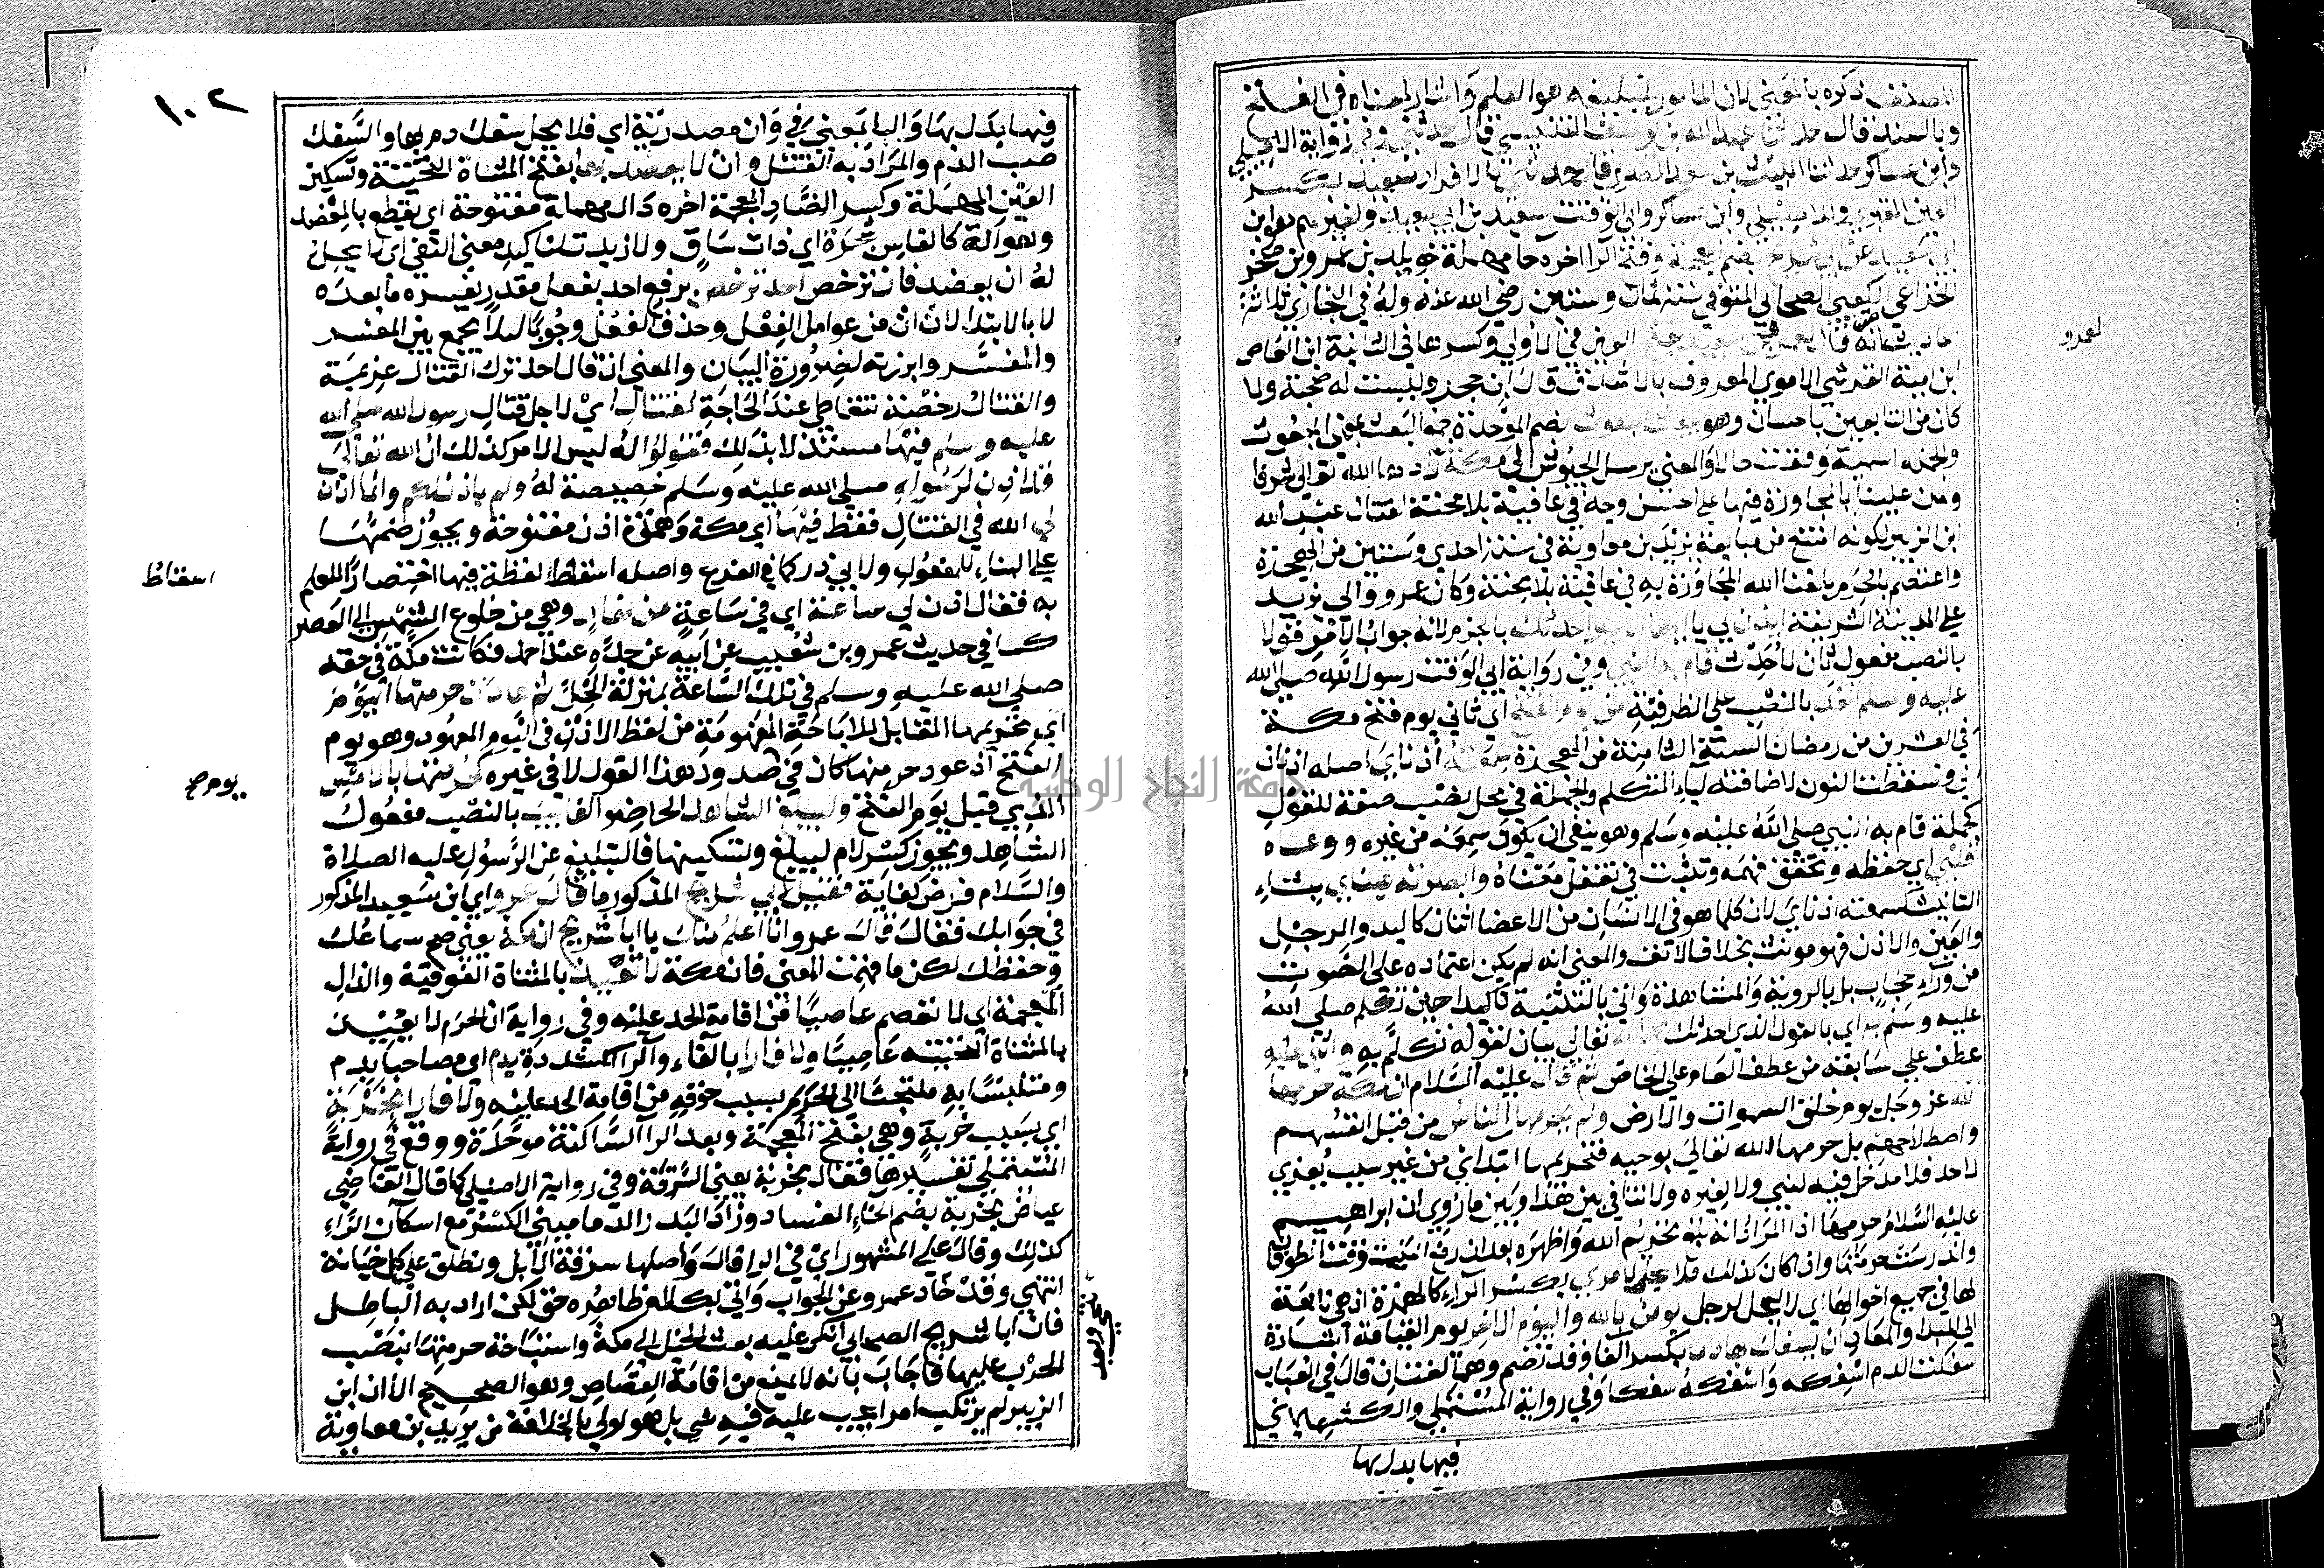 المصنف ذكره بالمعنى لان المامور بتبليغه هو العلم واشار لمعناه في الفاتح
وبالسند قال حدثنا عبد الله بن يوسف التنيسي قال حدثني وفي رواية الاصيلي
وابن عساكر حدثنا الليث بن سعد المصري قال حدثني بالافراد سعيد بكسر
العين المقبري وللاصيلي وابن عساكر وابي الوقت سعيد بن ابي سعيد ولغيرهم هو ابن
ابي سعيد عن ابي شريح بضم المعجمة وفتح الرا اخره حا مهملة خويلد بن عمرو بن صخر
الخزاعي الكعبي الصحابي المتوفي سنة ثمان وستين رضي الله عنه وله في البخاري ثلاثة
احاديث انه قال لعمرو بن سعيد بفتح العين في الاولى وكسرها في الثانية ابن العاص
لعمرو
ابن امية القرشي الاموي المعروف بالاشدق قال ابن حجر وليست له صحبة ولا
كان من التابعين باحسان وهو يبعث البعوث بضم الموحدة جمع البعث بمعنى المبعوث
والجملة اسمية وقعت حالا والمعنى يرسل الجيوش الى مكة زادها الله تعالى شرفا
ومن علينا بالمجاورة فيها على احسن وجه في عافية بلا محنة لقتال عبد الله
ابن الزبير لكونه امتنع من مبايعة يزيد بن معاوية في سنة احدي وستين من الهجرة
واعتصم بالحرم بلغنا الله المجاورة به في عافية بلا محنة وكان عمرو والي يزيد
على المدينة الشريفة ايذن لي يا ايها الامير احدثك بالجزم لانه جواب الامر قولا
بالنصب مفعول ثان لاحدث قام به النبي وفي رواية ابي الوقت رسول الله صلى الله
عليه وسلم الغد بالنصب على الظرفية من يوم الفتح اي ثاني يوم فتح مكة
في العشرين من رمضان السنة الثامنة من الهجرة سمعته اذناي اصله اذنان
لي وسقطت النون لاضافته لياء المتكلم والجملة في محل نصب صفة للقول
كجملة قام به النبي صلى الله عليه وسلم وهو ينفي ان يكون سمعه من غيره ووعاه
قلبي اي حفظه وتحقق فهمه وتثبت في تعقل معناه وابصرته عيناي بتاء
التانيث كسمعته اذناي لان كلما هو في الانسان من الاعضا اثنان كاليد والرجل
والعين والاذن فهو مونث بخلاف الانف والمعنى انه لم يكن اعتماده على الصوت
من وراء حجاب بل بالروية والمشاهدة واتي بالتثنية تاكيدا حين تكلم صلى الله
عليه وسلم به اي بالقول الذي احدثك حمد الله تعالى بيان لقوله تكلم به واثنى عليه
عطف على سابقه من عطف العام على الخاص ثم قال عليه السلام ان مكة حرمها
الله عز وجل يوم خلق السموات والارض ولم يحرمها الناس من قبل انفسهم
واصطلاحهم بل حرمها الله تعالى بوحيه فتحريمها ابتدائي من غير سبب يعزي
لاحد فلا مدخل فيه لنبي ولا لغيره ولا تنافي بين هذا وبين ما روي ان ابراهيم
عليه السلام حرمها اذ المراد انه بلغ تحريم الله واظهره بعد ان رفع البيت وقت الطوفان
واندرست حرمتها واذا كان كذلك فلا يحل لامري بكسر الراء كالهمزة اذ هي تابعة
لها في جميع احوالها اي لا يحل لرجل يومن بالله واليوم الاخر يوم القيامة اشارة
الى المبدا والمعاد ان يسفك بها دما بكسر الفا وقد تضم وهما لغتان قال في العباب
سفكت الدم اسفكه واسفكه سفكا وفي رواية المستملي والكشميهني
فيها بدل بها
١٠٢
فيها بدل بها والبا بمعنى في وان مصدرية اي فلا يحل سفك دم بها والسفك
صب الدم والمراد به القتل وان لا يعضد بها بفتح المثناة التحتية وتسكين
العين المهملة وكسر الضاد المعجمة اخره دال مهملة مفتوحة اي يقطع بالمعضد
وهو الة كالفاس شجرة اي ذات ساق ولا زيدت لتاكيد معنى النفي اي لا يحل
له ان يعضد فان ترخص احد ترخص برفع احد بفعل مقدر يفسره ما بعده
لا بالابتدا لان ان من عوامل الفعل وحذف الفعل وجوبا ليلا يجمع بين المفسر
والمفسر وابرزته لضرورة البيان والمعنى ان قال احد ترك القتال عزيمة
والقتال رخصة تتعاطى عند الحاجة لقتال اي لاجل قتال رسول الله صلى الله
عليه وسلم فيها مستدلا بذلك فقولوا له ليس الامر كذلك ان الله تعالى
قد اذن لرسوله صلى الله عليه وسلم خصيصة له ولم ياذن لكم وانما اذن
لي الله في القتال فقط فيها اي مكة وهمزة اذن مفتوحة ويجوز ضمها
على البناء للمفعول ولابي ذر كما في الفرع واصله اسقط لفظة فيها اختصارا للعلم
اسقاط
به فقال اذن لي ساعة اي في ساعة من نهار وهي من طلوع الشمس الى العصر
كما في حديث عمرو بن شعيب عن ابيه عن جده عند احمد فكانت مكة في حقه
صلى الله عليه وسلم في تلك الساعة بمنزلة الحل ثم عادت حرمتها اليوم
اي تحريمها المقابل للاباحة المفهومة من لفظ الاذن في اليوم المعهود وهو يوم
الفتح اذ عود حرمتها كان في صدور هذا القول لا في غيره كحرمتها بالامس
يوم صح
الذي قبل يوم الفتح وليبلغ الشاهد الحاضر الغايب بالنصب مفعول
الشاهد ويجوز كسر لام ليبلغ وتسكينها فالتبليغ عن الرسول عليه الصلاة
والسلام فرض كفاية فقيل لابي شريح المذكور ما قال عمرو اي ابن سعيد المذكور
في جوابك فقال قال عمرو انا اعلم منك يا ابا شريح ان مكة يعني صح سماعك
وحفظك لكن ما فهمت المعنى فان مكة لا تعيذ بالمثناة الفوقية والذال
المعجمة اي لا تعصم عاصيا من اقامة الحد عليه وفي رواية ان الحرم لا يعيذ
بالمثناة التحتية عاصيا ولا فارا بالفاء والرا المشددة بدم اي مصاحبا بدم
ومتلبسا به ملتجئا الى الحرم بسبب خوفه من اقامة الحد عليه ولا فارا بخربة
اي بسبب خربة وهي بفتح المعجمة وبعد الرا الساكنة موحدة ووقع في رواية
المستملي تفسيرها فقال بخربة يعني السرقة وفي رواية الاصيلي كما قال القاضي
عياض بخربة بضم الخاء الفساد وزاد البدر الدماميني الكسر مع اسكان الراء
كذلك وقال على المشهور اي في الرا قال واصلها سرقة الابل وتطلق على كل خيانة
انتهى وقد حاد عمرو عن الجواب واتي بكلام ظاهره حق لكن اراد به الباطل
فان ابا شريح الصحابي انكر عليه بعث الخيل الى مكة واستباحة حرمتها بنصب
الحرب عليها فاجاب بانه لا يمنع من اقامة القصاص وهو الصحيح الا ان ابن
الزبير لم يرتكب امرا يجب عليه فيه شي بل هو اولى بالخلافة من يزيد بن معاوية